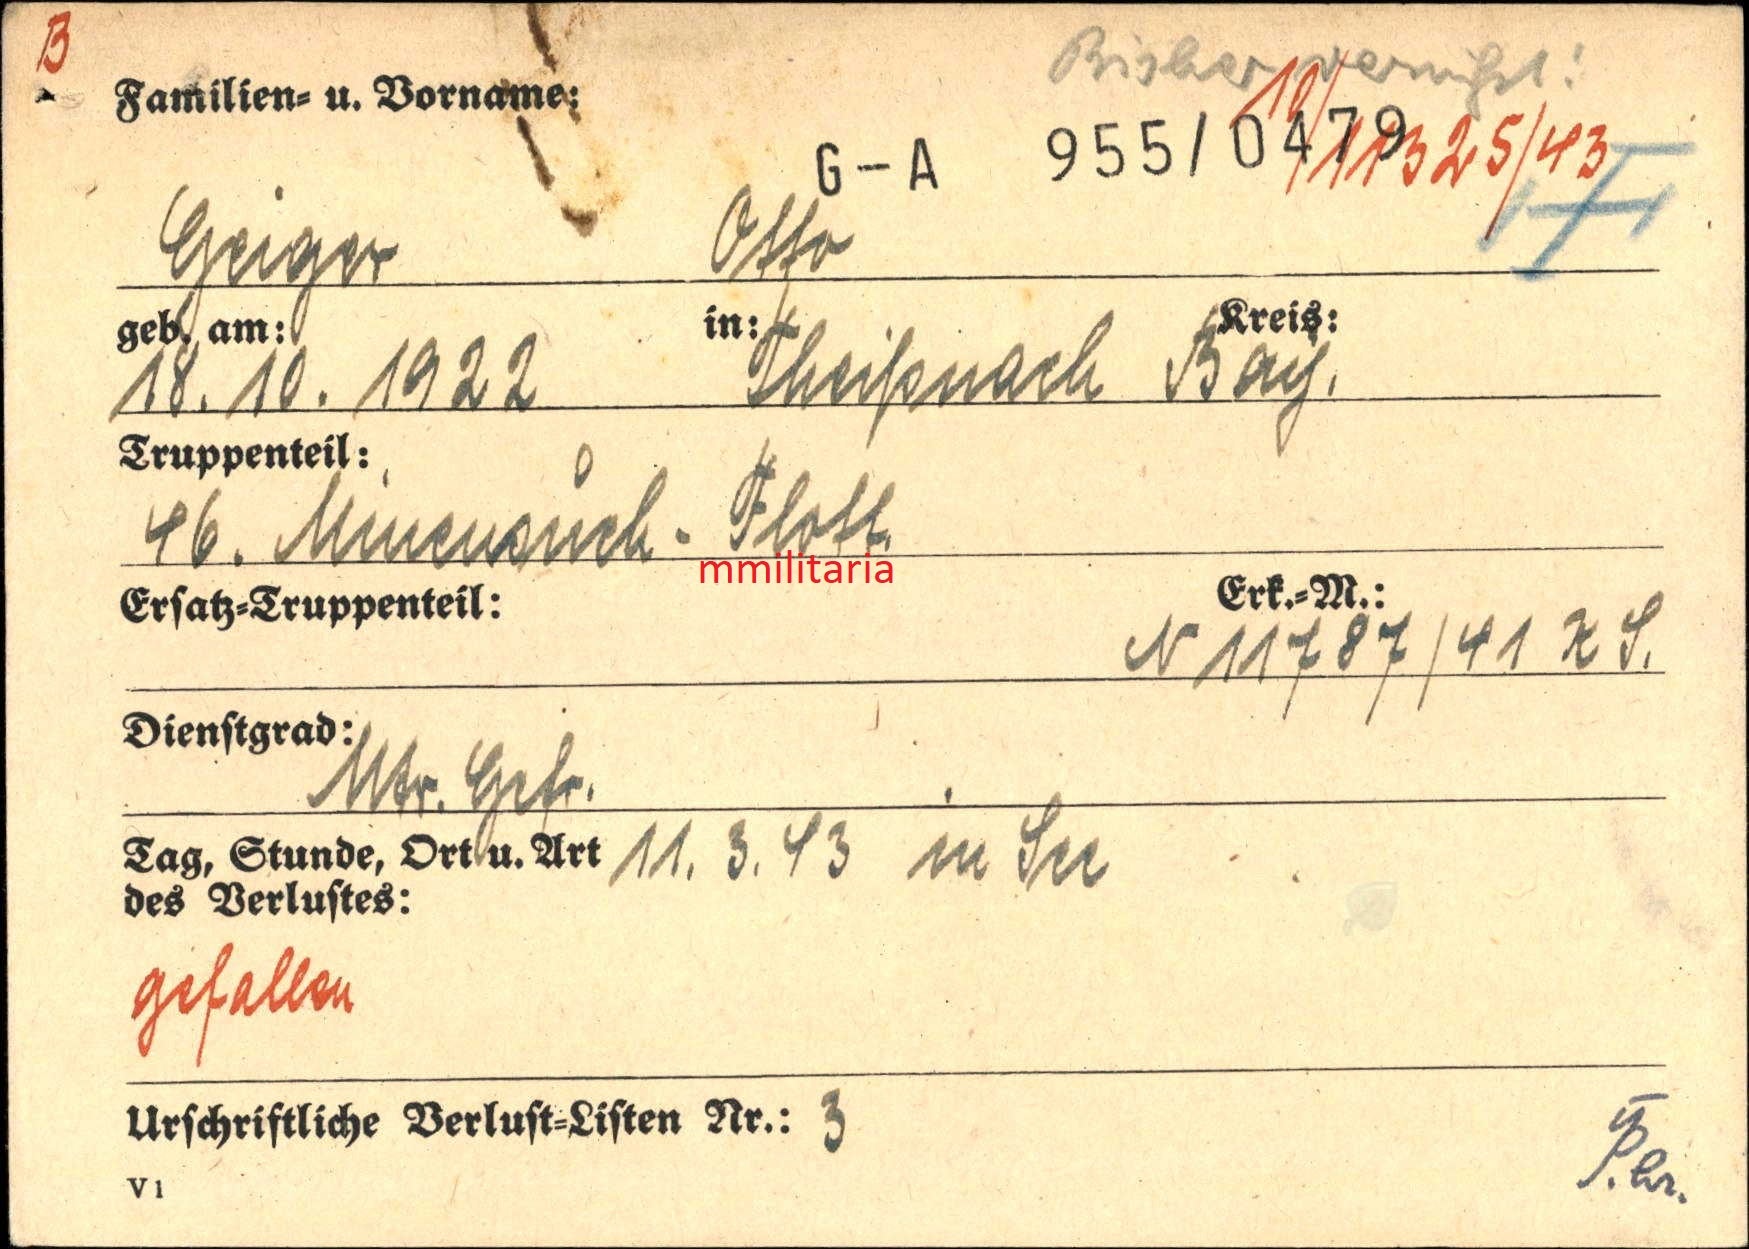 B
Bisher vermißt!
Familien- u. Vorname:
10/11325/43
G-A 955/0479
Geiger Otto
geb. am: in: Kreis:
18. 10. 1922 Theißnach Bay.
Truppenteil:
46. Minensuch- Flott.
mmilitaria
Ersatz-Truppenteil: Erk.-M.:
N 11787/41 K S.
Dienstgrad:
Mtr. Gefr.
Tag, Stunde, Ort u. Art 11. 3. 43 in See
des Verlustes:
gefallen
Urschriftliche Verlust-Listen Nr.: 3
V 1